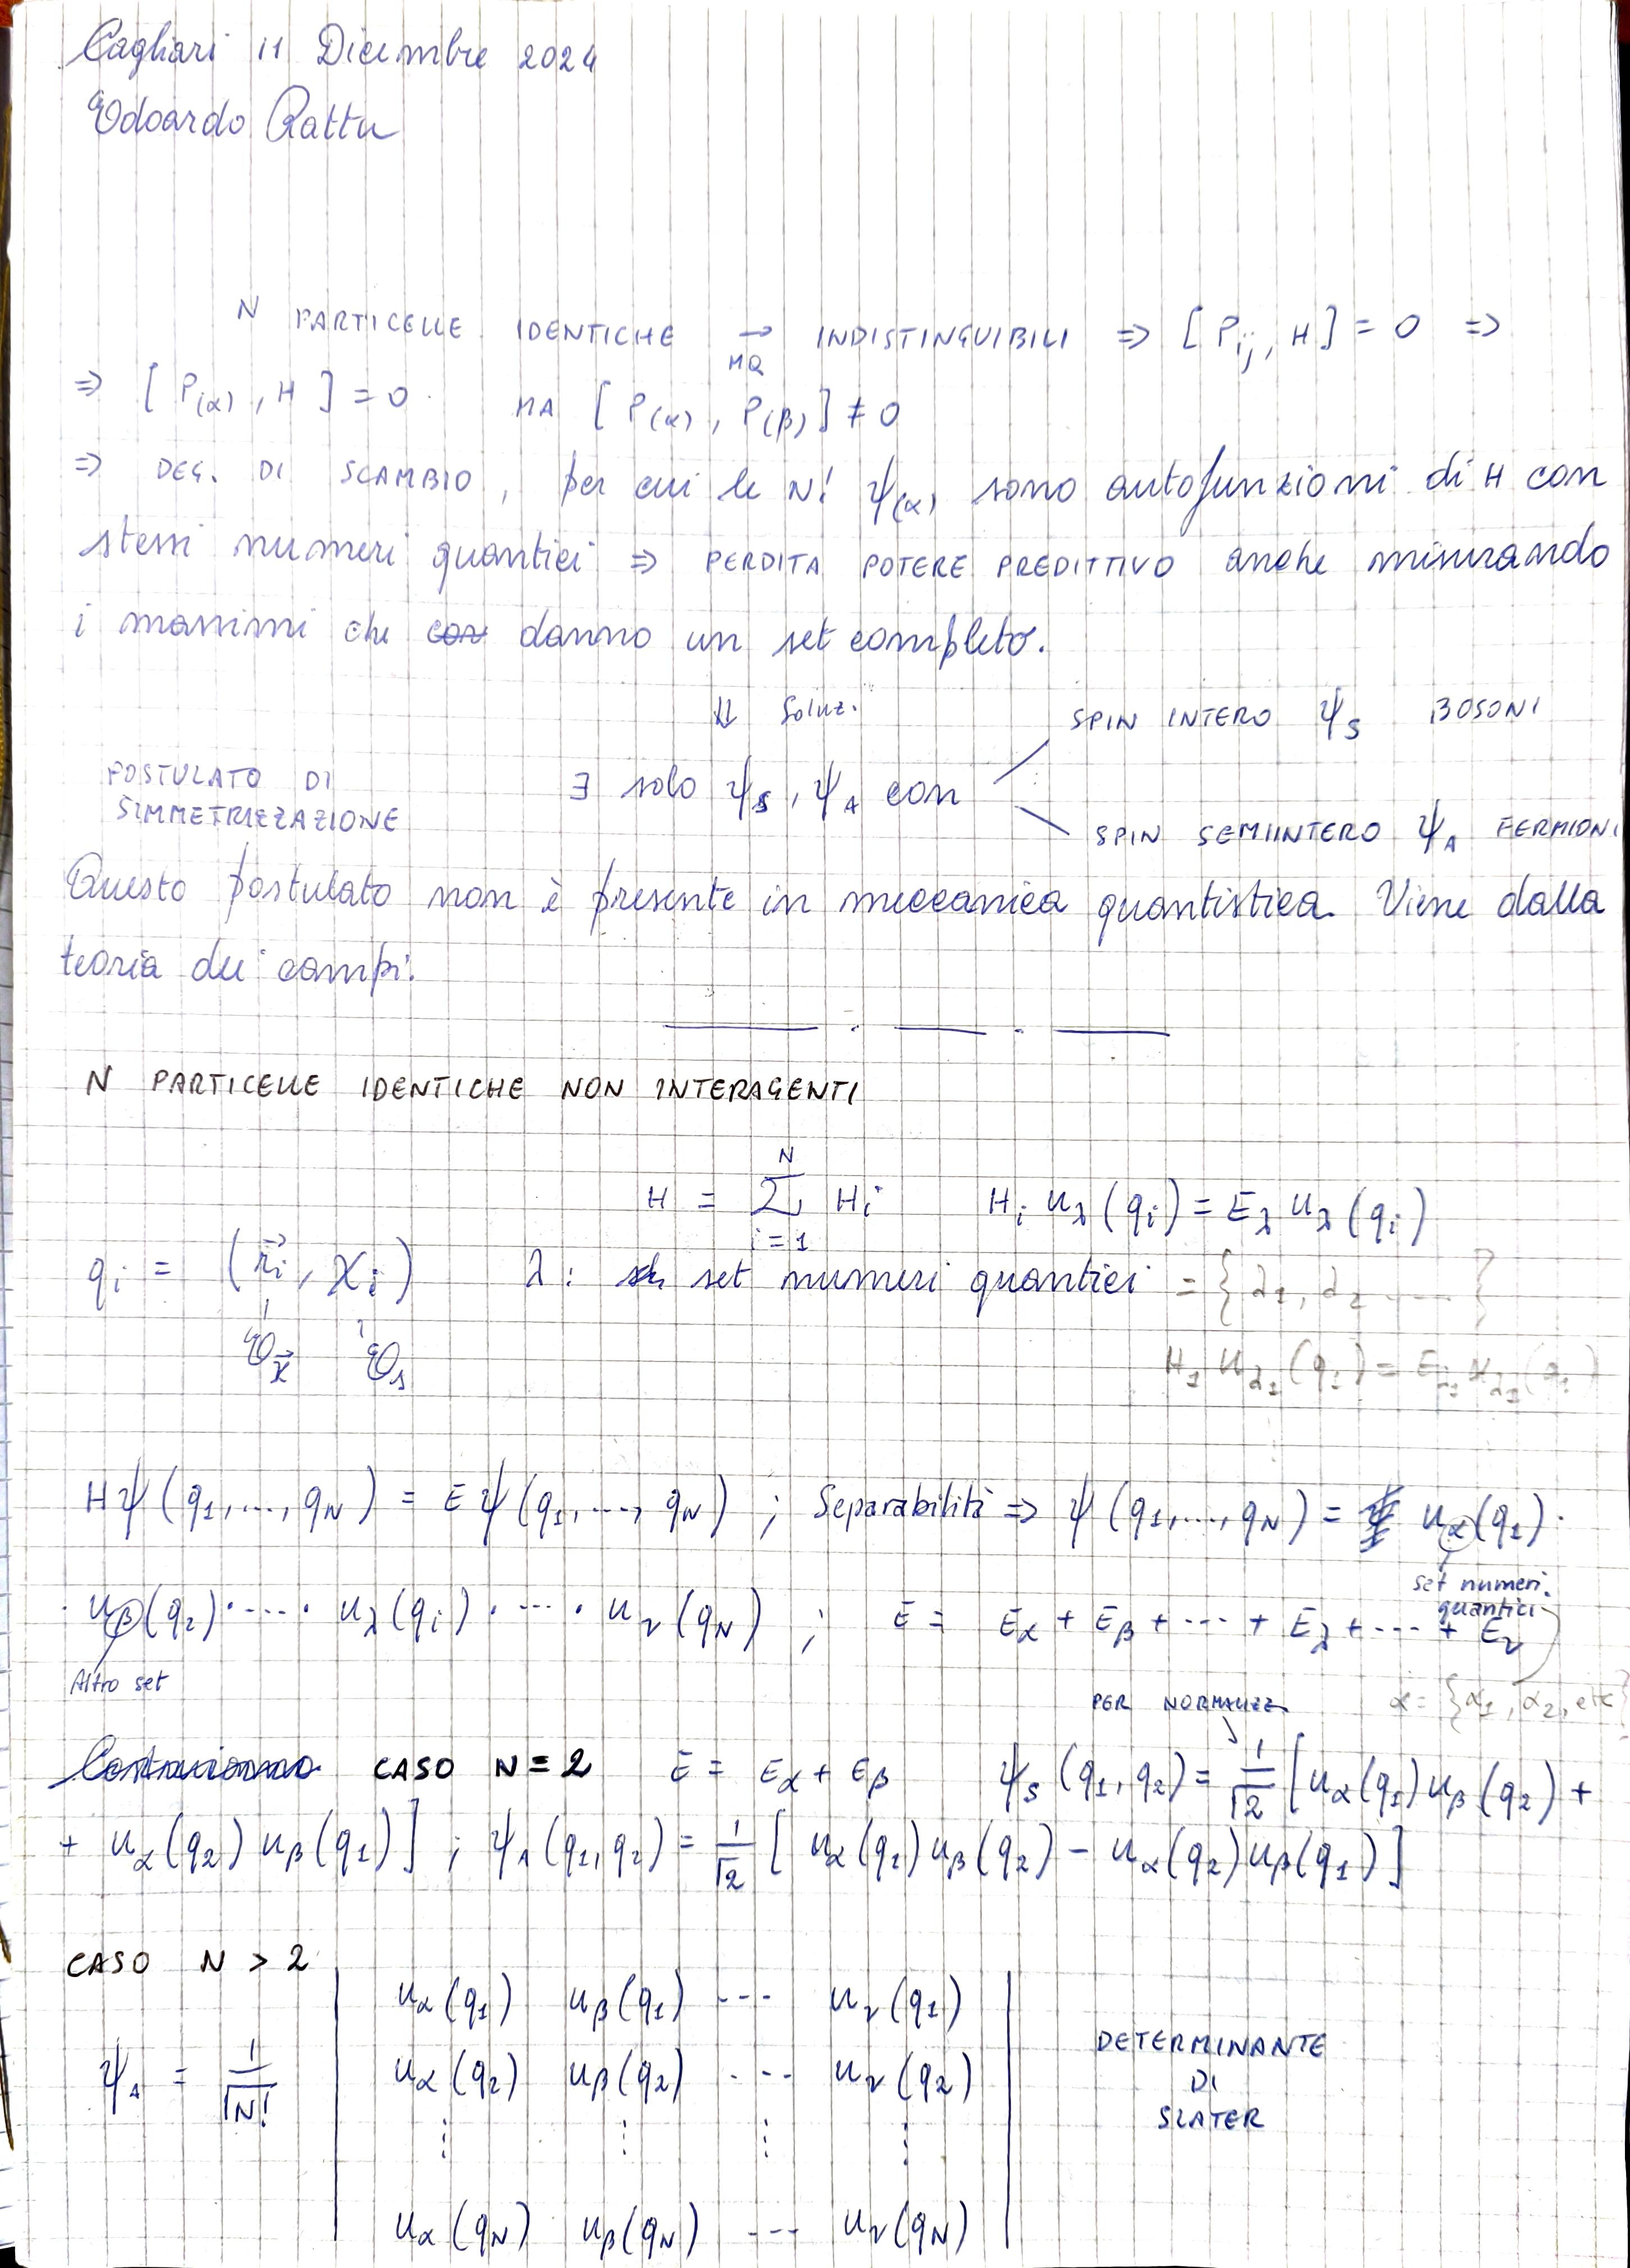 Cagliari 11 Dicembre 2024
Edoardo Rattu
N PARTICELLE IDENTICHE → INDISTINGUIBILI ⇒ [P_ij, H] = 0 ⇒
MQ
⇒ [P_(α), H] = 0 MA [P_(α), P_(β)] ≠ 0
⇒ DEG. DI SCAMBIO, per cui le N! ψ_(α) sono autofunzioni di H con
stessi numeri quantici ⇒ PERDITA POTERE PREDITTIVO anche misurando
i massimi che danno un set completo.
⇓ Soluz.
SPIN INTERO ψ_S BOSONI
POSTULATO DI
SIMMETRIZZAZIONE
∃ solo ψ_S, ψ_A con
SPIN SEMIINTERO ψ_A FERMIONI
Questo postulato non è presente in meccanica quantistica. Viene dalla
teoria dei campi.
N PARTICELLE IDENTICHE NON INTERAGENTI
H = Σ_{i=1}^{N} H_i H_i u_λ(q_i) = E_λ u_λ(q_i)
q_i = (r⃗_i, χ_i) λ: set numeri quantici = {λ_1, λ_2 ....}
H_1 u_λ1(q_1) = E_λ1 u_λ1(q_1)
Hψ(q_1,...,q_N) = Eψ(q_1,...,q_N) ; Separabilità ⇒ ψ(q_1,...,q_N) = u_α(q_1)·
set numeri
quantici
· u_β(q_2)· ... · u_λ(q_i)· ... · u_ν(q_N) ; E = E_α + E_β + ... + E_λ + ... + E_ν
Altro set
PER NORMALIZZ α = {α_1, α_2, etc}
CASO N = 2 E = E_α + E_β ψ_S(q_1, q_2) = 1/√2 [u_α(q_1) u_β(q_2) +
+ u_α(q_2) u_β(q_1)] ; ψ_A(q_1, q_2) = 1/√2 [u_α(q_1) u_β(q_2) − u_α(q_2) u_β(q_1)]
CASO N > 2
u_α(q_1) u_β(q_1) --- u_ν(q_1)
ψ_A = 1/√N! u_α(q_2) u_β(q_2) --- u_ν(q_2)
⋮ ⋮ ⋮ ⋮
u_α(q_N) u_β(q_N) --- u_ν(q_N)
DETERMINANTE
DI
SLATER